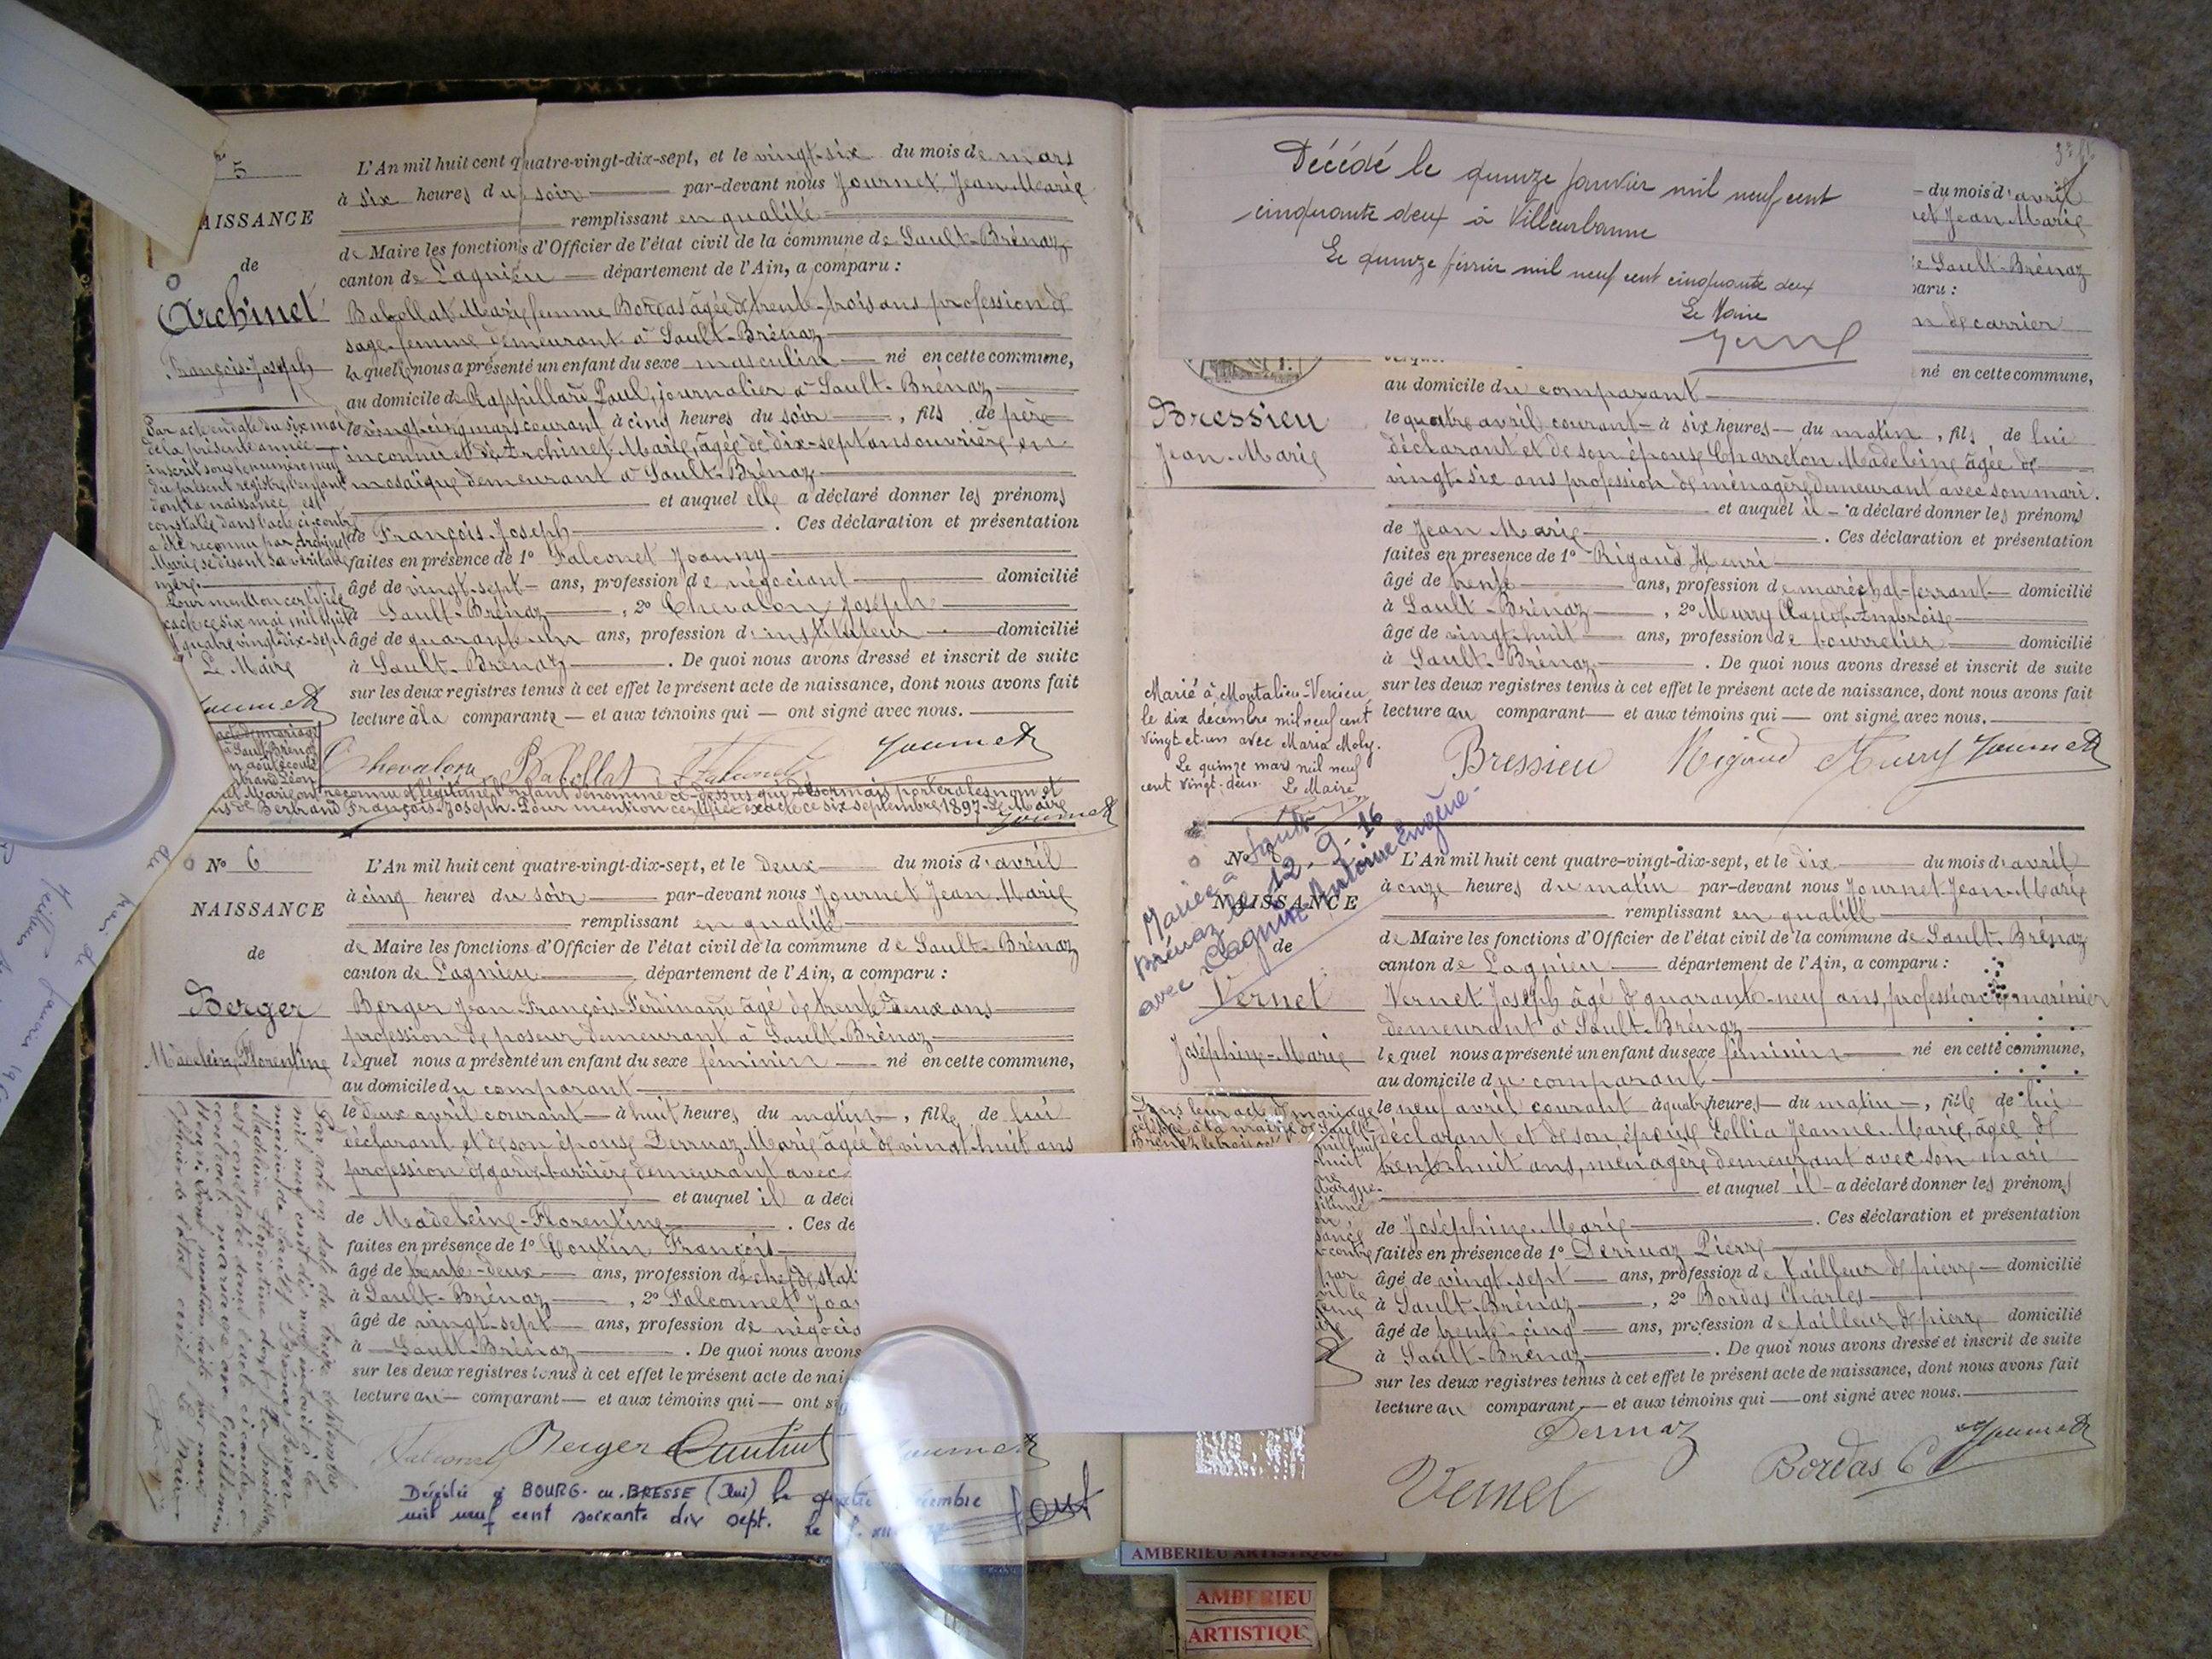 5
AISSANCE
de
Archinet
François-Joseph
Par acte en date du six mai
de la présente année
inscrit sous le numéro neuf
du présent registre, l'enfant
dont la naissance est
constatée dans l'acte ci-contre
a été reconnu par Archinet
Marie se disant sa véritable
mère.
Pour mention certifiée
exacte ce six mai mil huit
quatre vingt-dix-sept
Le Maire
Journet
L'An mil huit cent quatre-vingt-dix-sept, et le vingt-six du mois de mars
à six heures du soir par-devant nous Journet Jean-Marie
remplissant en qualité
de Maire les fonctions d'Officier de l'état civil de la commune de Sault-Brénaz
canton de Lagnieu département de l'Ain, a comparu :
Babollat Marie femme Bordas âgée de trente-trois ans profession de
sage-femme demeurant à Sault-Brénaz
laquelle nous a présenté un enfant du sexe masculin né en cette commune,
au domicile de Rappillard Paul, journalier à Sault-Brénaz
le vingt-cinq mars courant à cinq heures du soir, fils de père
inconnu et de Archinet Marie, âgée de dix-sept ans ouvrière en
mosaïque demeurant à Sault-Brénaz
et auquel elle a déclaré donner les prénoms
de François-Joseph. Ces déclaration et présentation
faites en présence de 1° Falconet Joanny
âgé de vingt-sept ans, profession de négociant domicilié
à Sault-Brénaz, 2° Chevalon Joseph
âgé de quarante un ans, profession d'instituteur domicilié
à Sault-Brénaz. De quoi nous avons dressé et inscrit de suite
sur les deux registres tenus à cet effet le présent acte de naissance, dont nous avons fait
lecture à la comparante et aux témoins qui ont signé avec nous.
Chevalon Babollat Falconet Journet
reconnu et légitimé enfant dénommé ci-dessus qui désormais portera les nom et
de Bertrand François-Joseph. Pour mention certifiée exacte ce six septembre 1897. Le Maire
Journet
N° 6
NAISSANCE
de
Berger
Madeleine-Florentine
L'An mil huit cent quatre-vingt-dix-sept, et le deux du mois d'avril
à cinq heures du soir par-devant nous Journet Jean-Marie
remplissant en qualité
de Maire les fonctions d'Officier de l'état civil de la commune de Sault-Brénaz
canton de Lagnieu département de l'Ain, a comparu :
Berger Jean-François-Ferdinand âgé de trente-deux ans
profession de poseur demeurant à Sault-Brénaz
lequel nous a présenté un enfant du sexe féminin né en cette commune,
au domicile du comparant
le deux avril courant à huit heures du matin, fille de lui
déclarant et de son épouse Derruaz Marie âgée de vingt-huit ans
profession de garde barrière demeurant avec
et auquel il a décl
de Madeleine-Florentine. Ces dé
faites en présence de 1° François
âgé de trente-deux ans, profession de chef de stat
à Sault-Brénaz, 2° Falconnet Joa
âgé de vingt-sept ans, profession de négocia
à Sault-Brénaz. De quoi nous avons
sur les deux registres tenus à cet effet le présent acte de nai
lecture au comparant et aux témoins qui ont sig
Falconet Berger Journet
Décédée à BOURG-en-BRESSE (Ain) le quatre décembre
mil neuf cent soixante dix sept. le
Décédé le quinze janvier mil neuf cent
cinquante deux à Villeurbanne
Le quinze février mil neuf cent cinquante deux
Le Maire
du mois d'avril
et Jean Marie
e Sault-Brénaz
paru :
n de carrier
né en cette commune,
Bressieu
Jean-Marie
au domicile du comparant
le quatre avril courant à six heures du matin, fils de lui
déclarant et de son épouse Charreton Madeleine âgée de
vingt-six ans profession de ménagère demeurant avec son mari.
et auquel il a déclaré donner les prénoms
de Jean Marie. Ces déclaration et présentation
faites en présence de 1° Rigaud Henri
âgé de trente ans, profession de maréchal-ferrant domicilié
à Sault-Brénaz, 2° Murry Claude-Ambroise
âgé de vingt-huit ans, profession de bourrelier domicilié
à Sault-Brénaz. De quoi nous avons dressé et inscrit de suite
sur les deux registres tenus à cet effet le présent acte de naissance, dont nous avons fait
lecture au comparant et aux témoins qui ont signé avec nous.
Bressieu Rigaud Murry Journet
Marié à Montalieu-Vercieu
le dix décembre mil neuf cent
vingt-et-un avec Maria Moly.
Le quinze mars mil neuf
cent vingt-deux. Le Maire
Mariée à Sault
Brénaz le 12.9.16
avec Antoine Eugène.
N°
NAISSANCE
de
Vernet
Joséphine-Marie
L'An mil huit cent quatre-vingt-dix-sept, et le dix du mois d'avril
à onze heures du matin par-devant nous Journet Jean-Marie
remplissant en qualité
de Maire les fonctions d'Officier de l'état civil de la commune de Sault-Brénaz
canton de Lagnieu département de l'Ain, a comparu :
Vernet Joseph âgé de quarante-neuf ans, profession de marinier
demeurant à Sault-Brénaz
lequel nous a présenté un enfant du sexe féminin né en cette commune,
au domicile du comparant
le neuf avril courant à quatre heures du matin, fille de lui
déclarant et de son épouse Jeanne-Marie, âgée de
trente-huit ans, ménagère demeurant avec son mari
et auquel il a déclaré donner les prénoms
de Joséphine-Marie. Ces déclaration et présentation
faites en présence de 1° Derruaz Pierre
âgé de vingt-sept ans, profession de tailleur de pierre domicilié
à Sault-Brénaz, 2° Bordas Charles
âgé de trente-cinq ans, profession de tailleur de pierre domicilié
à Sault-Brénaz. De quoi nous avons dressé et inscrit de suite
sur les deux registres tenus à cet effet le présent acte de naissance, dont nous avons fait
lecture au comparant et aux témoins qui ont signé avec nous.
Derruaz Journet
Vernet Bordas C
AMBERIEU ARTISTIQUE
AMBERIEU
ARTISTIQU